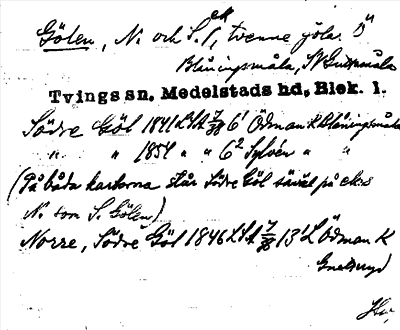 Gölen, N. och S., ek, tvenne sjöar. Ö
Blåningsmåla, SV Gummåla
Tvings sn, Medelstads hd, Blek. l.
Södre Göl 1841 LSA 7/38 6¹ Ödman K Blåningsmåla
" " 1854 " " 6² Sylvén " "
(På båda kartorna står Södre Göl såväl på ek:s
N. som S. Gölen)
Norre, Södre Göl 1846 LSA 7/38 13¹ L Ödman K
Gnetteryd